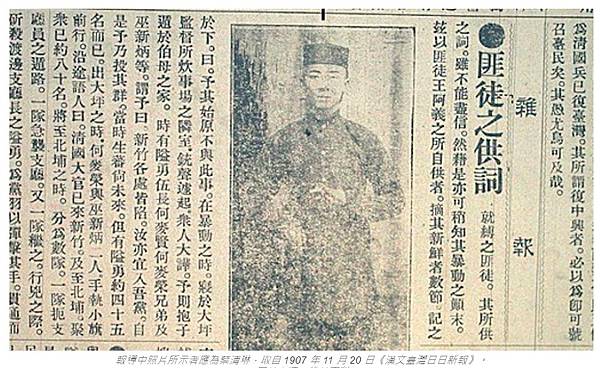 為清國兵已復臺灣。其所謂復中興者。必以為即可號
召臺民矣。其愚尤烏可及哉。
雜報
●匪徒之供詞
就縛之匪徒。其所供
之詞。雖不能盡信。然藉是亦可稍知其暴動之顛末。
茲以匪徒王阿義之所自供者。摘其新鮮者數節。記之
於下。曰。予其始原不與此事。在暴動之時。寢於大坪
監督所炊事場之隣室。銃聲遽起。衆人大譁。予則抱子
避於伯母之家。時有隘勇伍長何麥賢何麥榮兄弟及
巫新炳等。謂予曰。新竹各處皆陷。汝亦宜入吾黨。自
是予乃投其群。當時生蕃尚未來。但有隘勇約四十五
名而已。出大坪之時。何麥榮與巫新炳一人。手執小旗
前行。沿途語人曰。清國大官已來新竹。及至北埔。聚
衆已約八十名。將至北埔之時。分為數隊。一隊扼支
廳員之遁路。一隊急襲支廳。又一隊繼之。行兇之際。
斫殺渡邊支廳長之隘勇。為黨羽以彈擊其手。貫通而
報導中照片所示者應為蔡清琳，取自 1907 年 11 月 20 日《漢文臺灣日日新報》。